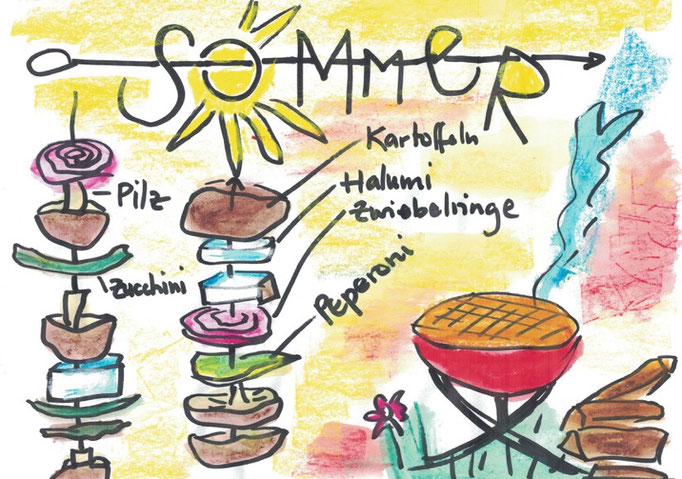 SOMMER
Kartoffeln
Halumi
Zwiebelringe
Pilz
Zucchini
Peperoni